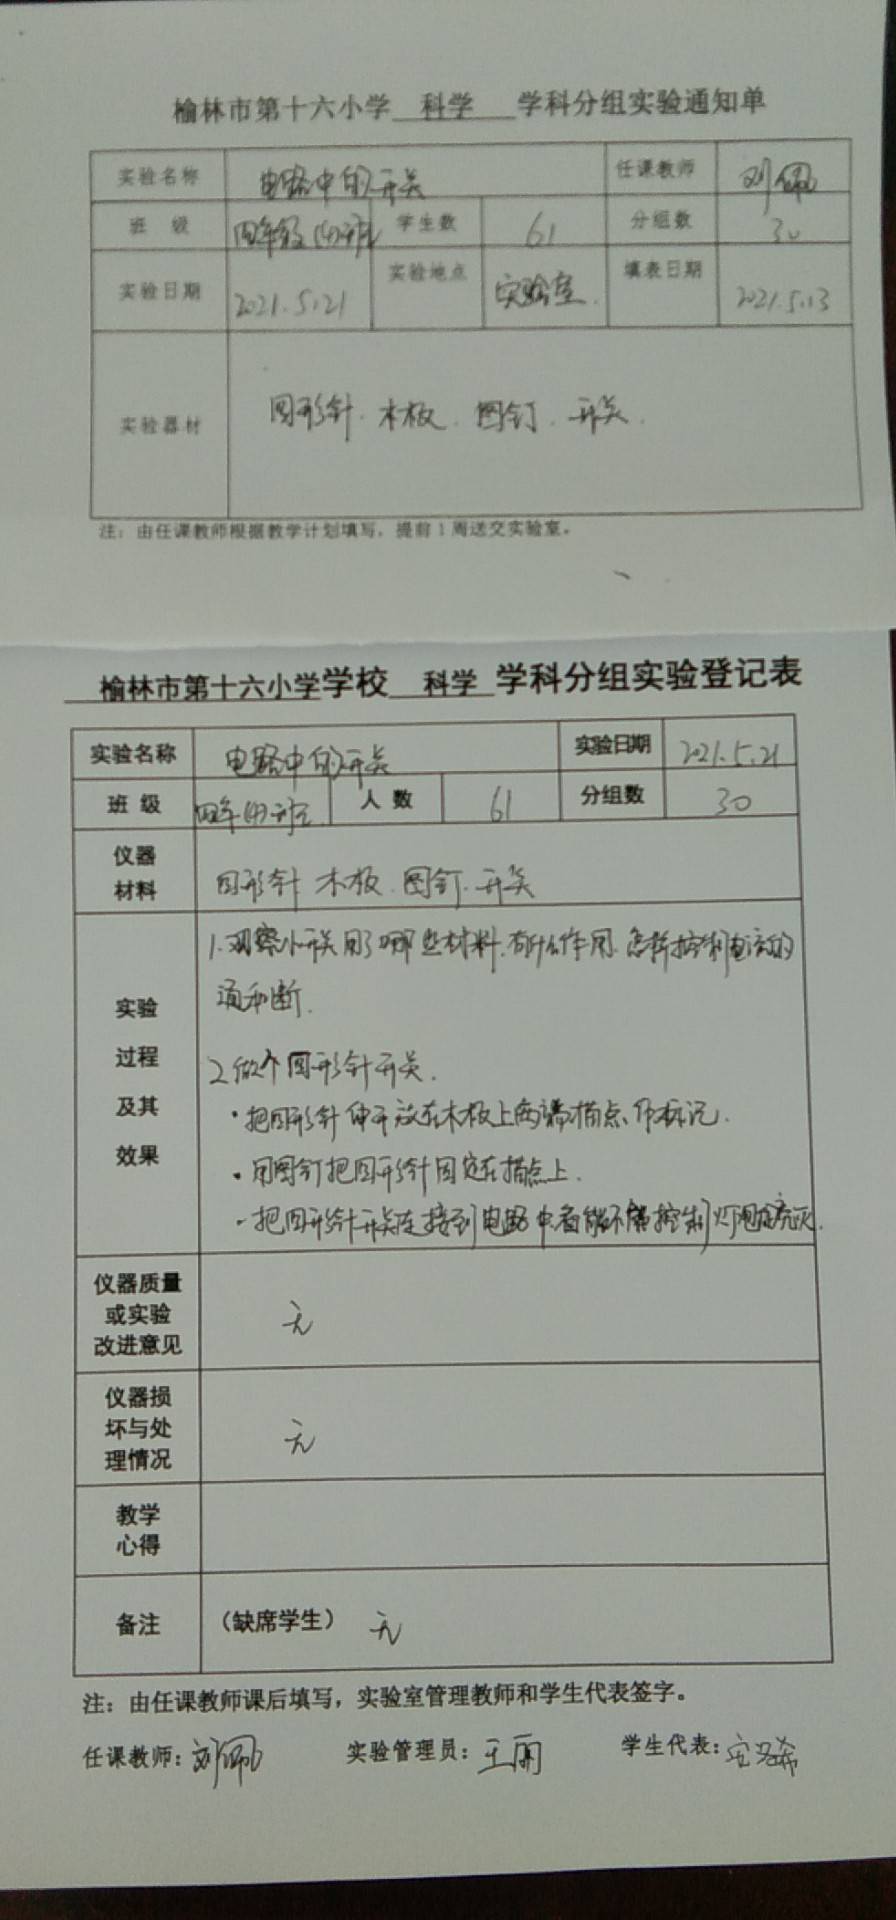 榆林市第十六小学 科学 学科分组实验通知单
实验名称 电路中的开关 任课教师 刘佩
班 级 四年级(4)班 学生数 61 分组数 30
实验日期 2021.5.21 实验地点 实验室. 填表日期 2021.5.13
实验器材 回形针. 木板. 图钉. 开关.
注：由任课教师根据教学计划填写，提前1周送交实验室。
榆林市第十六小学学校 科学 学科分组实验登记表
实验名称 电路中的开关 实验日期 2021.5.21
班 级 四年(4)班 人 数 61 分组数 30
仪器
材料 回形针 木板. 图钉. 开关
实验
过程
及其
效果
1.观察小开关用了哪些材料.有什么作用.怎样控制电流的
通和断.
2.做个回形针开关.
·把回形针伸开放在木板上两端描点作标记.
·用图钉把回形针固定在描点上.
·把回形针开关连接到电路中看能不能控制灯泡亮灭.
仪器质量
或实验
改进意见 无
仪器损
坏与处
理情况 无
教学
心得
备注 （缺席学生） 无
注：由任课教师课后填写，实验室管理教师和学生代表签字。
任课教师：刘佩 实验管理员：王丽 学生代表：